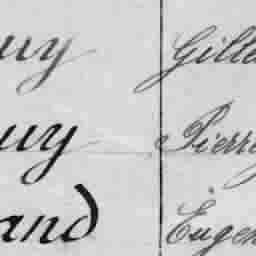 uy Gille
uy Pierre
and Eugen